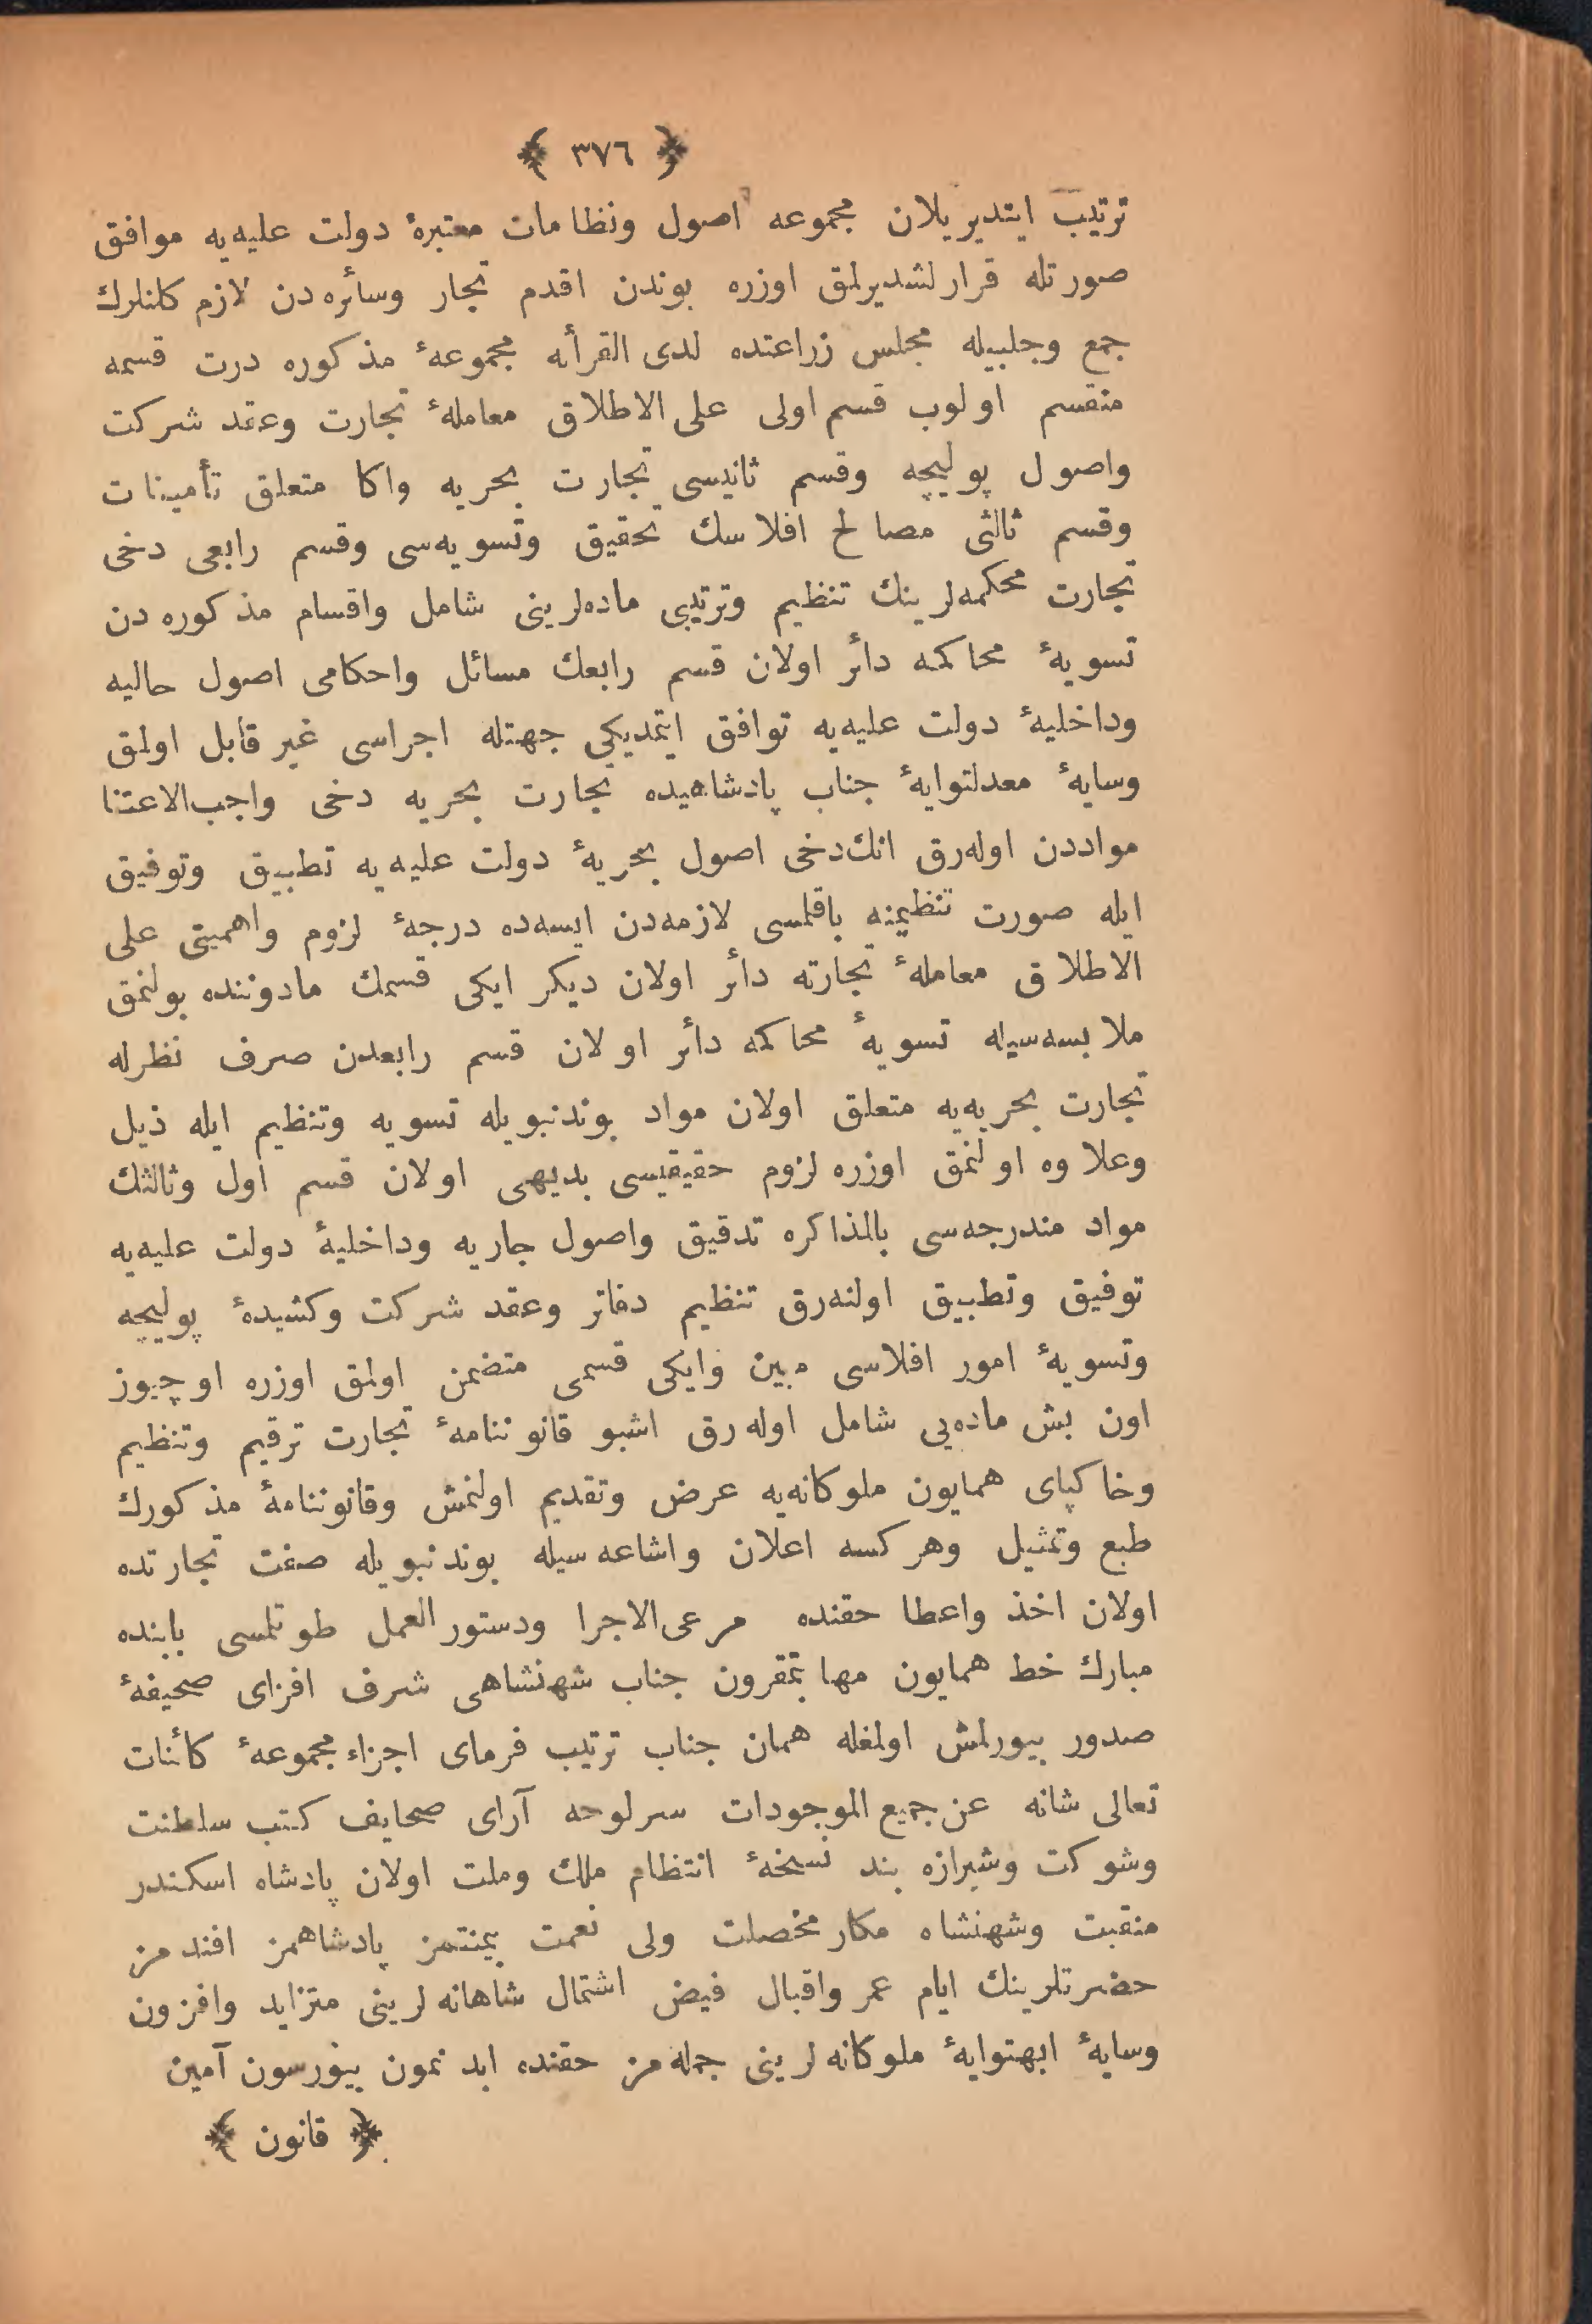 ﴿ ٣٧٦ ﴾
ترتيب ايتديريلان مجموعه اصول ونظامات معتبرۀ دولت عليه‌يه موافق
صورتله قرارلشديرلمق اوزره بوندن اقدم تجار وسائره‌دن لازم كلنلرك
جمع وجلبيله مجلس زراعتده لدى القرأه مجموعۀ مذكوره درت قسمه
منقسم اولوب قسم اولى على الاطلاق معاملۀ تجارت وعقد شركت
واصول پوليچه وقسم ثانيسى تجارت بحريه واكا متعلق تأمينات
وقسم ثالثى مصالح افلاسك تحقيق وتسويه‌سى وقسم رابعى دخى
تجارت محكمه‌لرينك تنظيم وترتيبى ماده‌لرينى شامل واقسام مذكوره دن
تسويۀ محاكمه دائر اولان قسم رابعك مسائل واحكامى اصول حاليه
وداخليۀ دولت عليه‌يه توافق ايتمديكى جهتله اجراسى غير قابل اولمق
وسايۀ معدلتوايۀ جناب پادشاهيده تجارت بحريه دخى واجب‌الاعتنا
مواددن اوله‌رق انك‌دخى اصول بحريۀ دولت عليه‌يه تطبيق وتوفيق
ايله صورت تنظيمنه باقلمسى لازمه‌دن ايسه‌ده درجۀ لزوم واهميتى على
الاطلاق معاملۀ تجارته دائر اولان ديكر ايكى قسمك مادوننده بولنمق
ملابسه‌سيله تسويۀ محاكمه دائر اولان قسم رابعدن صرف نظرله
تجارت بحريه‌يه متعلق اولان مواد بوندنبويله تسويه وتنظيم ايله ذيل
وعلاوه اولنمق اوزره لزوم حقيقيسى بديهى اولان قسم اول وثالثك
مواد مندرجه‌سى بالمذاكره تدقيق واصول جاريه وداخليۀ دولت عليه‌يه
توفيق وتطبيق اولنه‌رق تنظيم دفاتر وعقد شركت وكشيدۀ پوليچه
وتسويۀ امور افلاسى مبين وايكى قسمى متضمن اولمق اوزره اوچيوز
اون بش ماده‌يى شامل اوله‌رق اشبو قانوننامۀ تجارت ترقيم وتنظيم
وخاكپاى همايون ملوكانه‌يه عرض وتقديم اولنمش وقانوننامۀ مذكورك
طبع وتمثيل وهركسه اعلان واشاعه سيله بوندنبويله صفت تجارتده
اولان اخذ واعطا حقنده مرعى‌الاجرا ودستور العمل طوتلمسى بابنده
مبارك خط همايون مهابتمقرون جناب شهنشاهى شرف افزاى صحيفۀ
صدور بيورلمش اولمغله همان جناب ترتيب فرماى اجزاء مجموعۀ كائنات
تعالى شانه عن جميع الموجودات سرلوحه آراى صحايف كتب سلطنت
وشوكت وشيرازه بند نسخۀ انتظام ملك وملت اولان پادشاه اسكندر
منقبت وشهنشاه مكارمخصلت ولى نعمت بيمنتمز پادشاهمز افندمز
حضرتلرينك ايام عمر واقبال فيض اشتمال شاهانه لرينى متزايد وافزون
وسايۀ ابهتوايۀ ملوكانه لرينى جمله‌مز حقنده ابد نمون بيورسون آمين
﴿ قانون ﴾